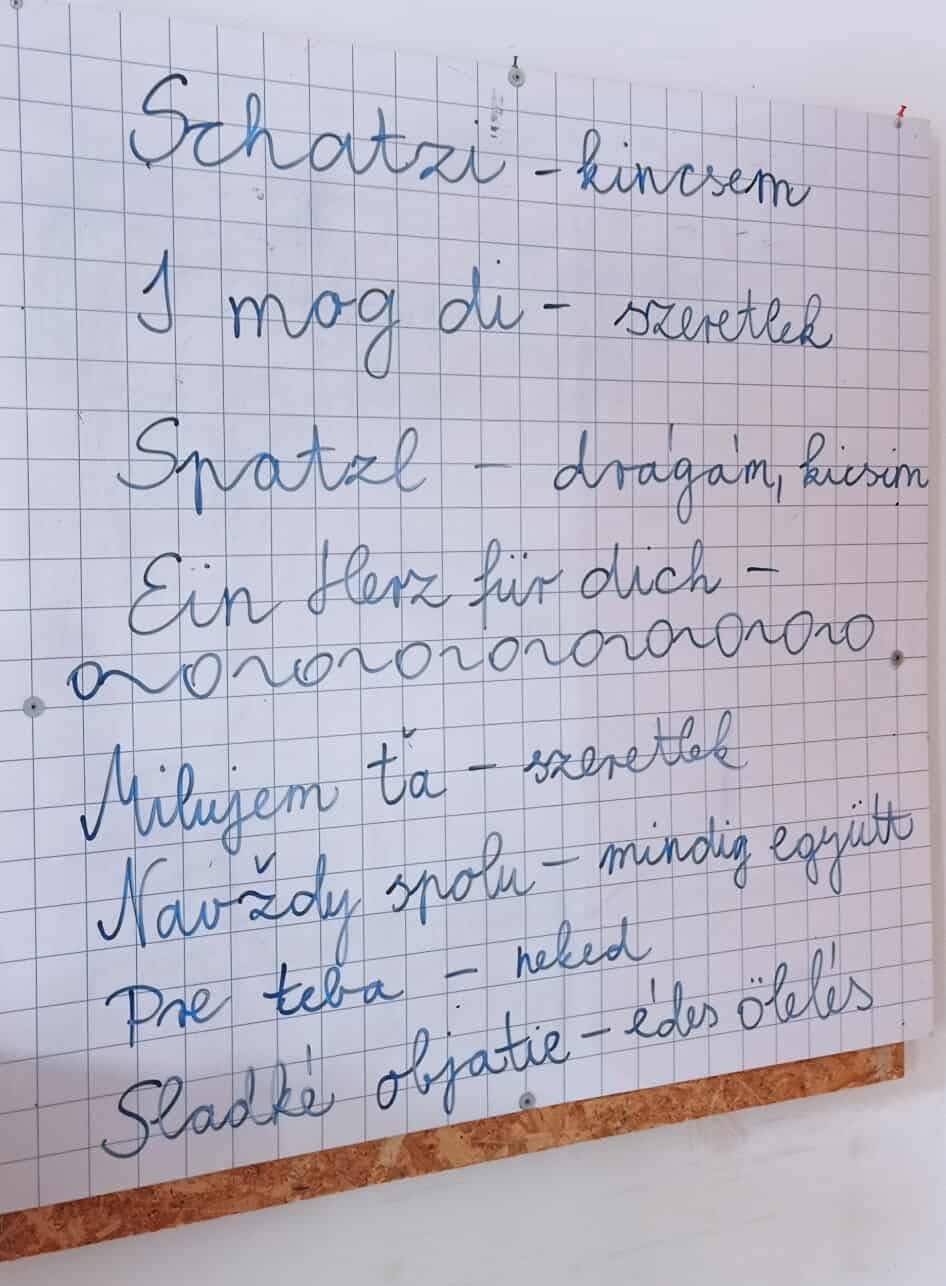 Schatzi - kincsem
I mog di - szeretlek
Spatzl - drágám, kicsim
Ein Herz für dich -
Milujem ťa - szeretlek
Navždy spolu - mindig együtt
Pre teba - neked
Sladké objatie - édes ölelés